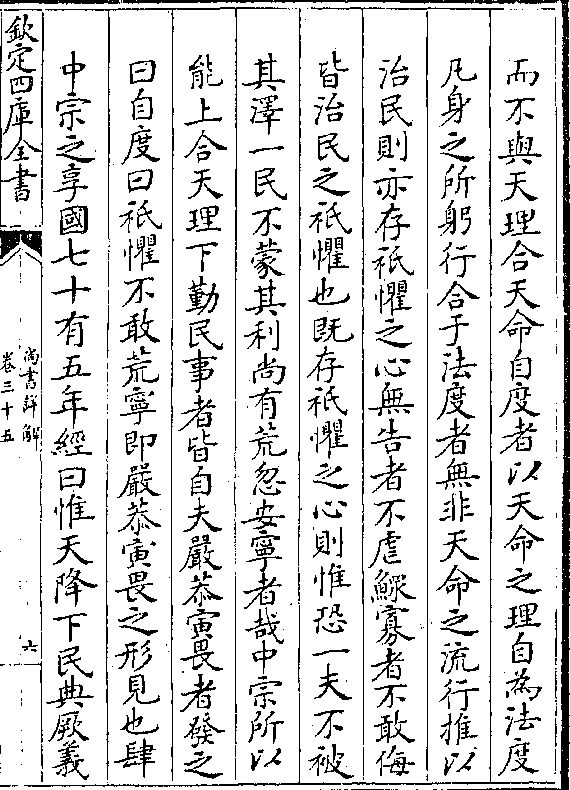 而不與天理合天命自度者以天命之理自為法度
凡身之所躬行合于法度者無非天命之流行推以
治民則亦存祗懼之心無告者不虐鰥寡者不敢侮
皆治民之祗懼也既存祗懼之心則惟恐一夫不被
其澤一民不蒙其利尚有荒忽安寧者哉中宗所以
能上合天理下勤民事者皆自夫嚴恭寅畏者發之
曰自度曰祗懼不敢荒寧即嚴恭寅畏之形見也肆
中宗之享國七十有五年經曰惟天降下民典厥義
欽定四庫全書
尚書詳解
卷三十五
六